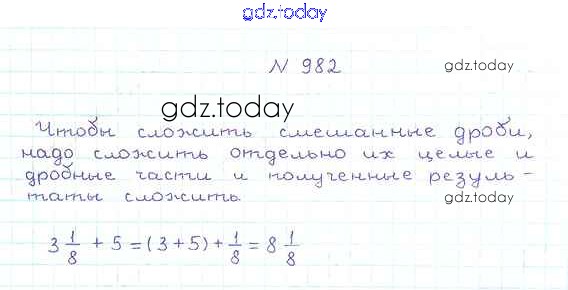 gdz.today
N 982
gdz.today
gdz.today
Чтобы сложить смешанные дроби,
надо сложить отдельно их целые и
дробные части и полученные резуль-
таты сложить.
gdz.today
3 1/8 + 5 = (3 + 5) + 1/8 = 8 1/8